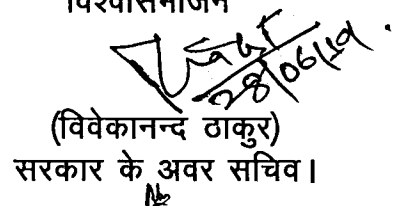 विश्वासभाजन
28/06/19
(विवेकानन्द ठाकुर)
सरकार के अवर सचिव।